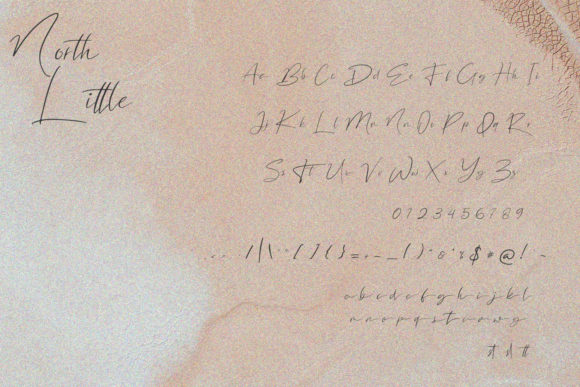 North
Little
Aa Bb Cc Dd Ee Ff Gg Hh Ii
Jj Kk Ll Mm Nn Oo Pp Qq Rr
Ss Tt Uu Vv Ww Xx Yy Zz
0123456789
$ @ !
a b c d e f g h i j k l